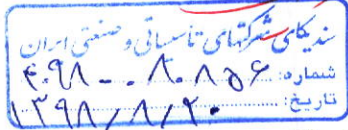 سندیکای شرکتهای تاسیساتی و صنعتی ایران
شماره: ۴۰۹۸۰۰۰۸۰۸۵۶
تاریخ: ۱۳۹۸/۸/۲۰